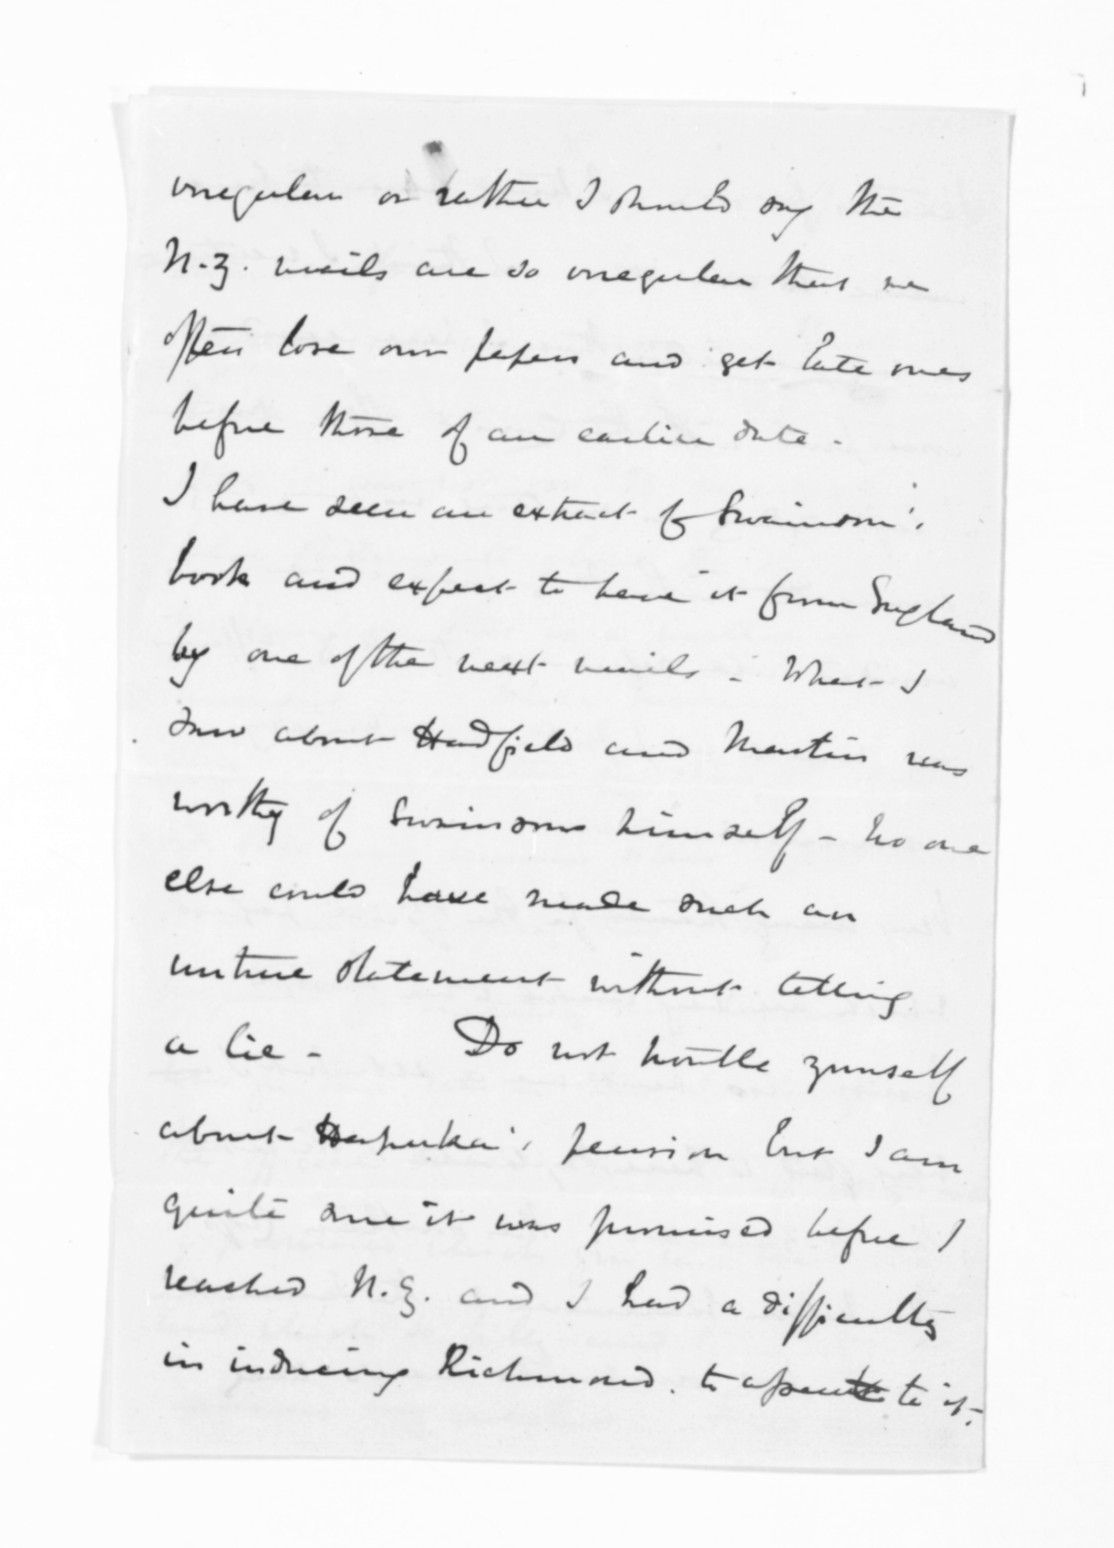 irregular or rather I should say the
N.Z. mails are so irregular that we
often lose our papers and get late ones
before those of an earlier date -
I have seen an extract of Swainson's
book and expect to have it from England
by one of the next mails - What I
saw about Hadfield and Martin was
worthy of Swainson himself - no one
else could have made such an
untrue statement without telling
a lie - Do not trouble yourself
about Hapuka's pension but I am
quite sure it was promised before I
reached N.Z. and I had a difficulty
in inducing Richmond to agree to it.